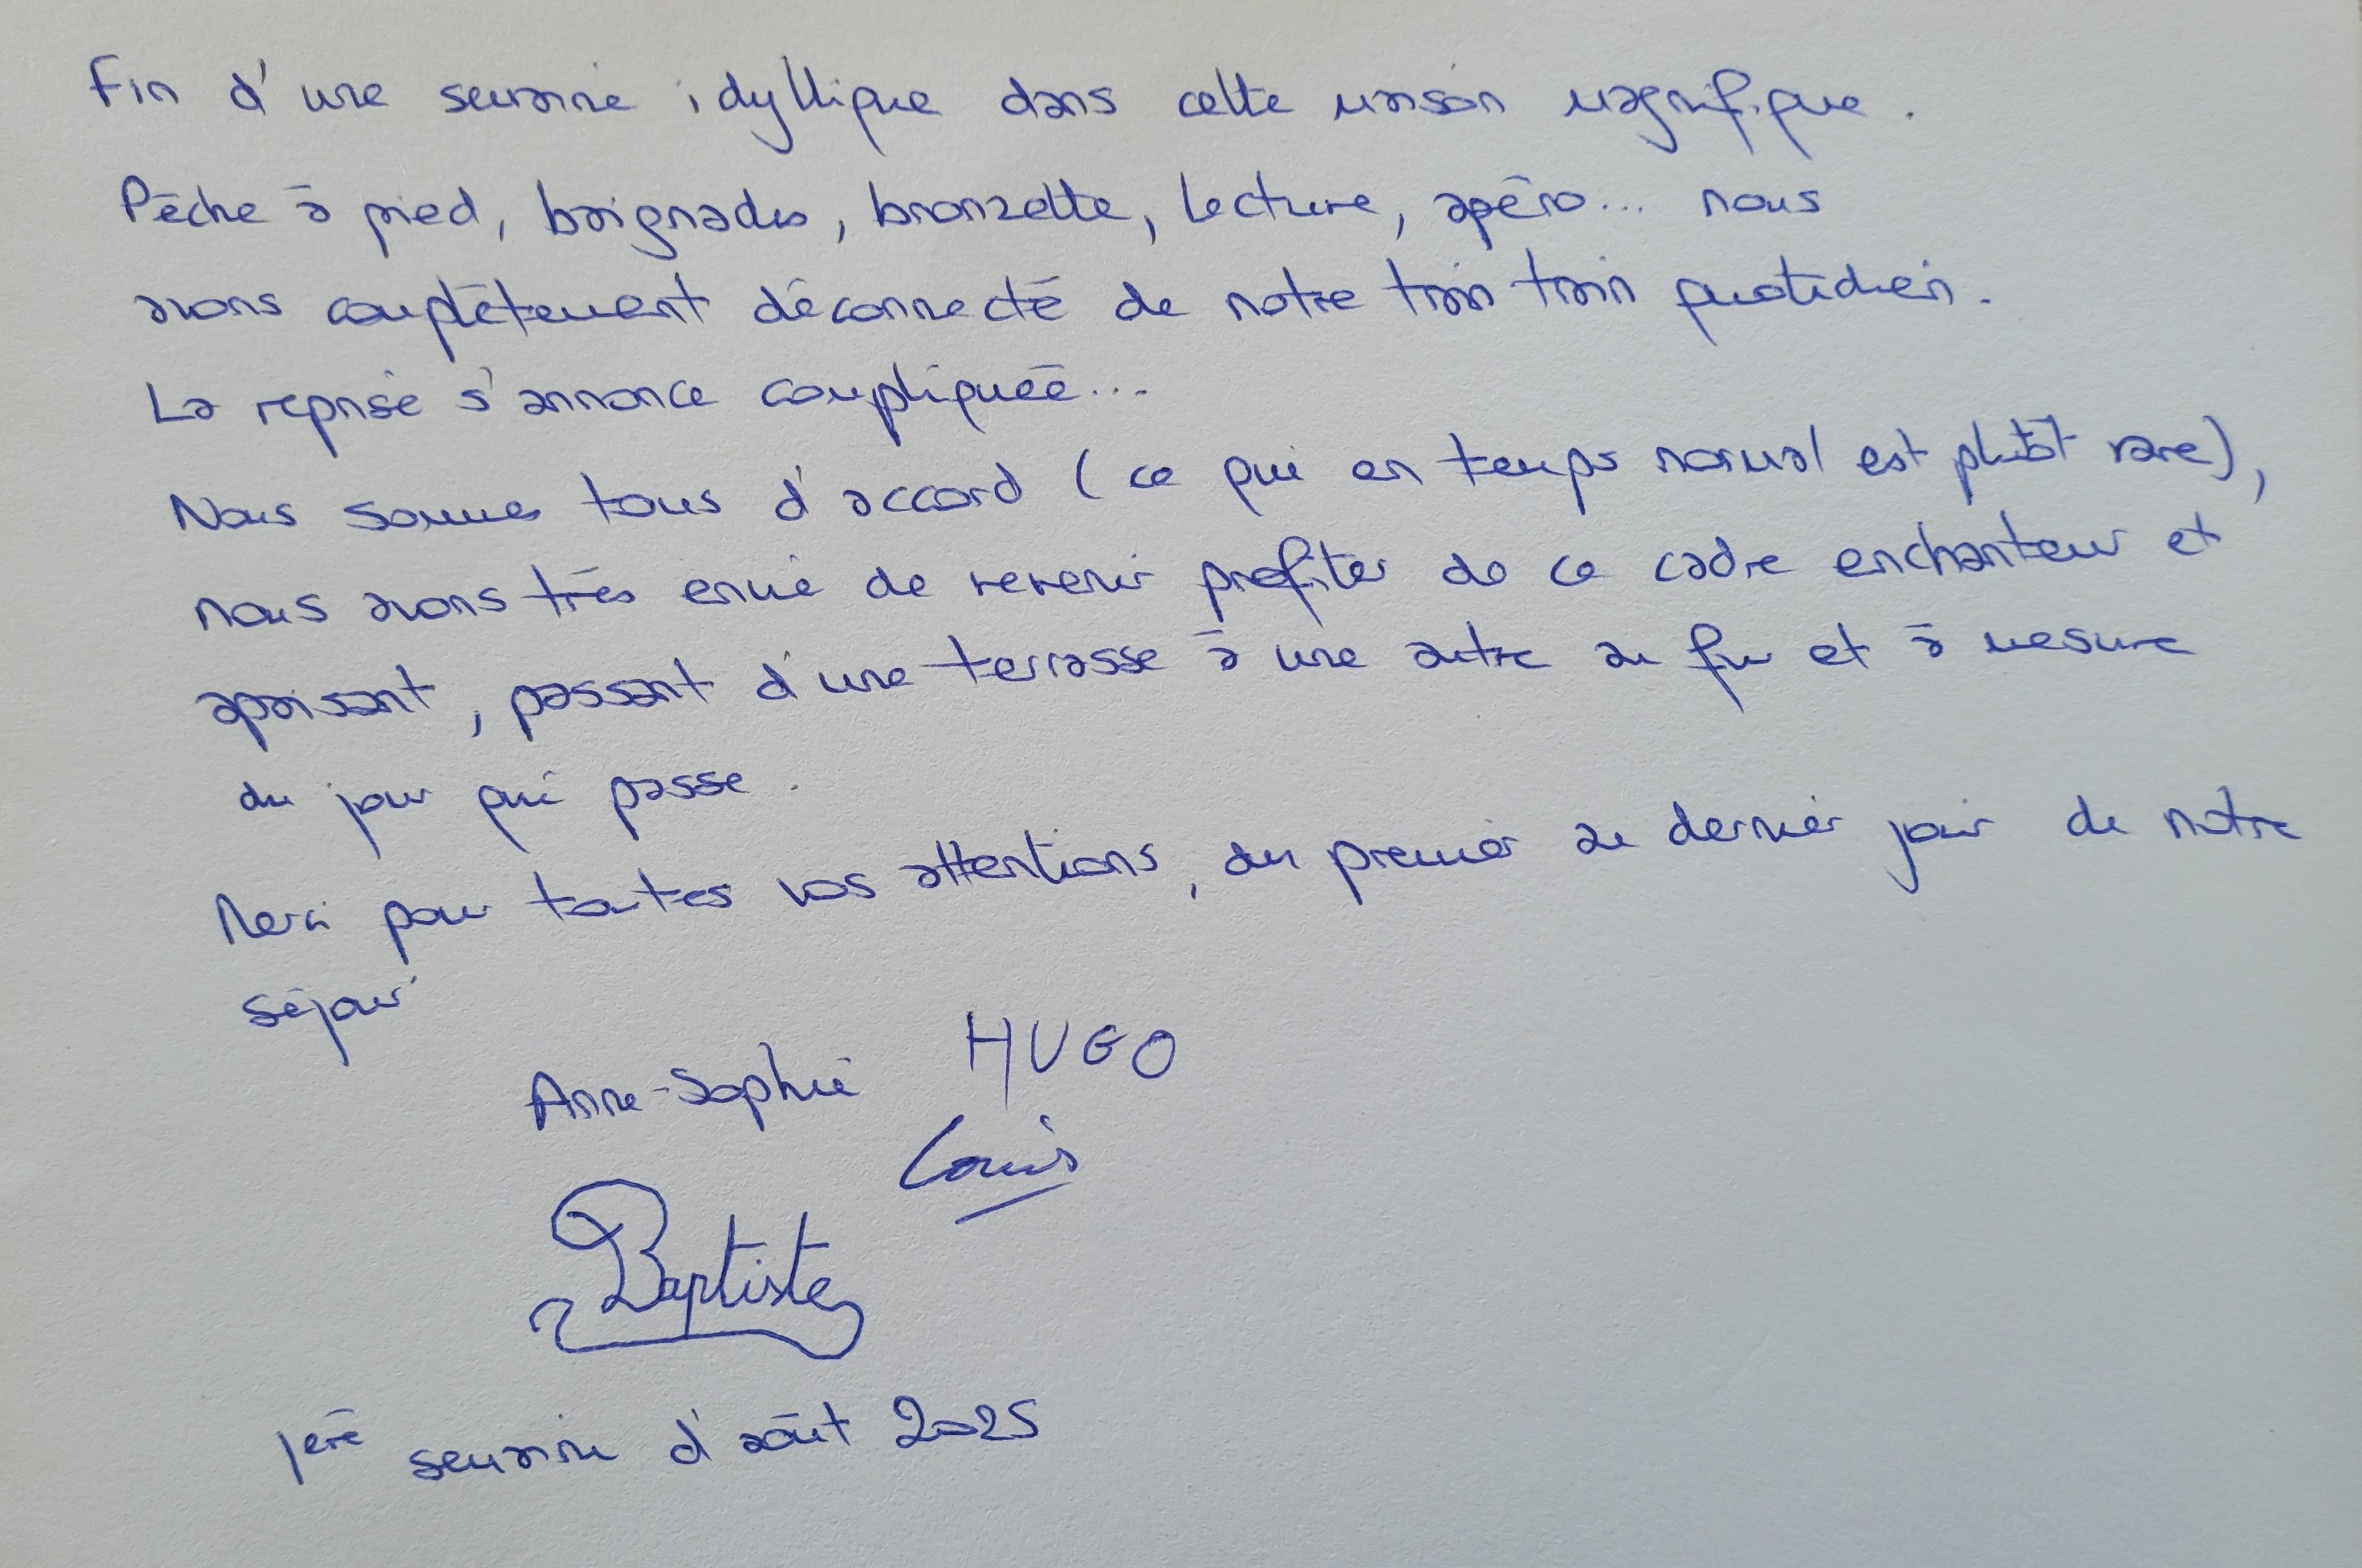 Fin d'une semaine idyllique dans cette maison magnifique.
Pêche à pied, baignades, bronzette, lecture, apéro... nous
avons complètement déconnecté de notre train train quotidien.
La reprise s'annonce compliquée...
Nous sommes tous d'accord (ce qui en temps normal est plutôt rare),
nous avons très envie de revenir profiter de ce cadre enchanteur et
apaisant, passant d'une terrasse à une autre au fur et à mesure
du jour qui passe.
Merci pour toutes vos attentions, du premier au dernier jour de notre
séjour
Anne-Sophie HUGO
Louis
Baptiste
1ère semaine d'août 2025